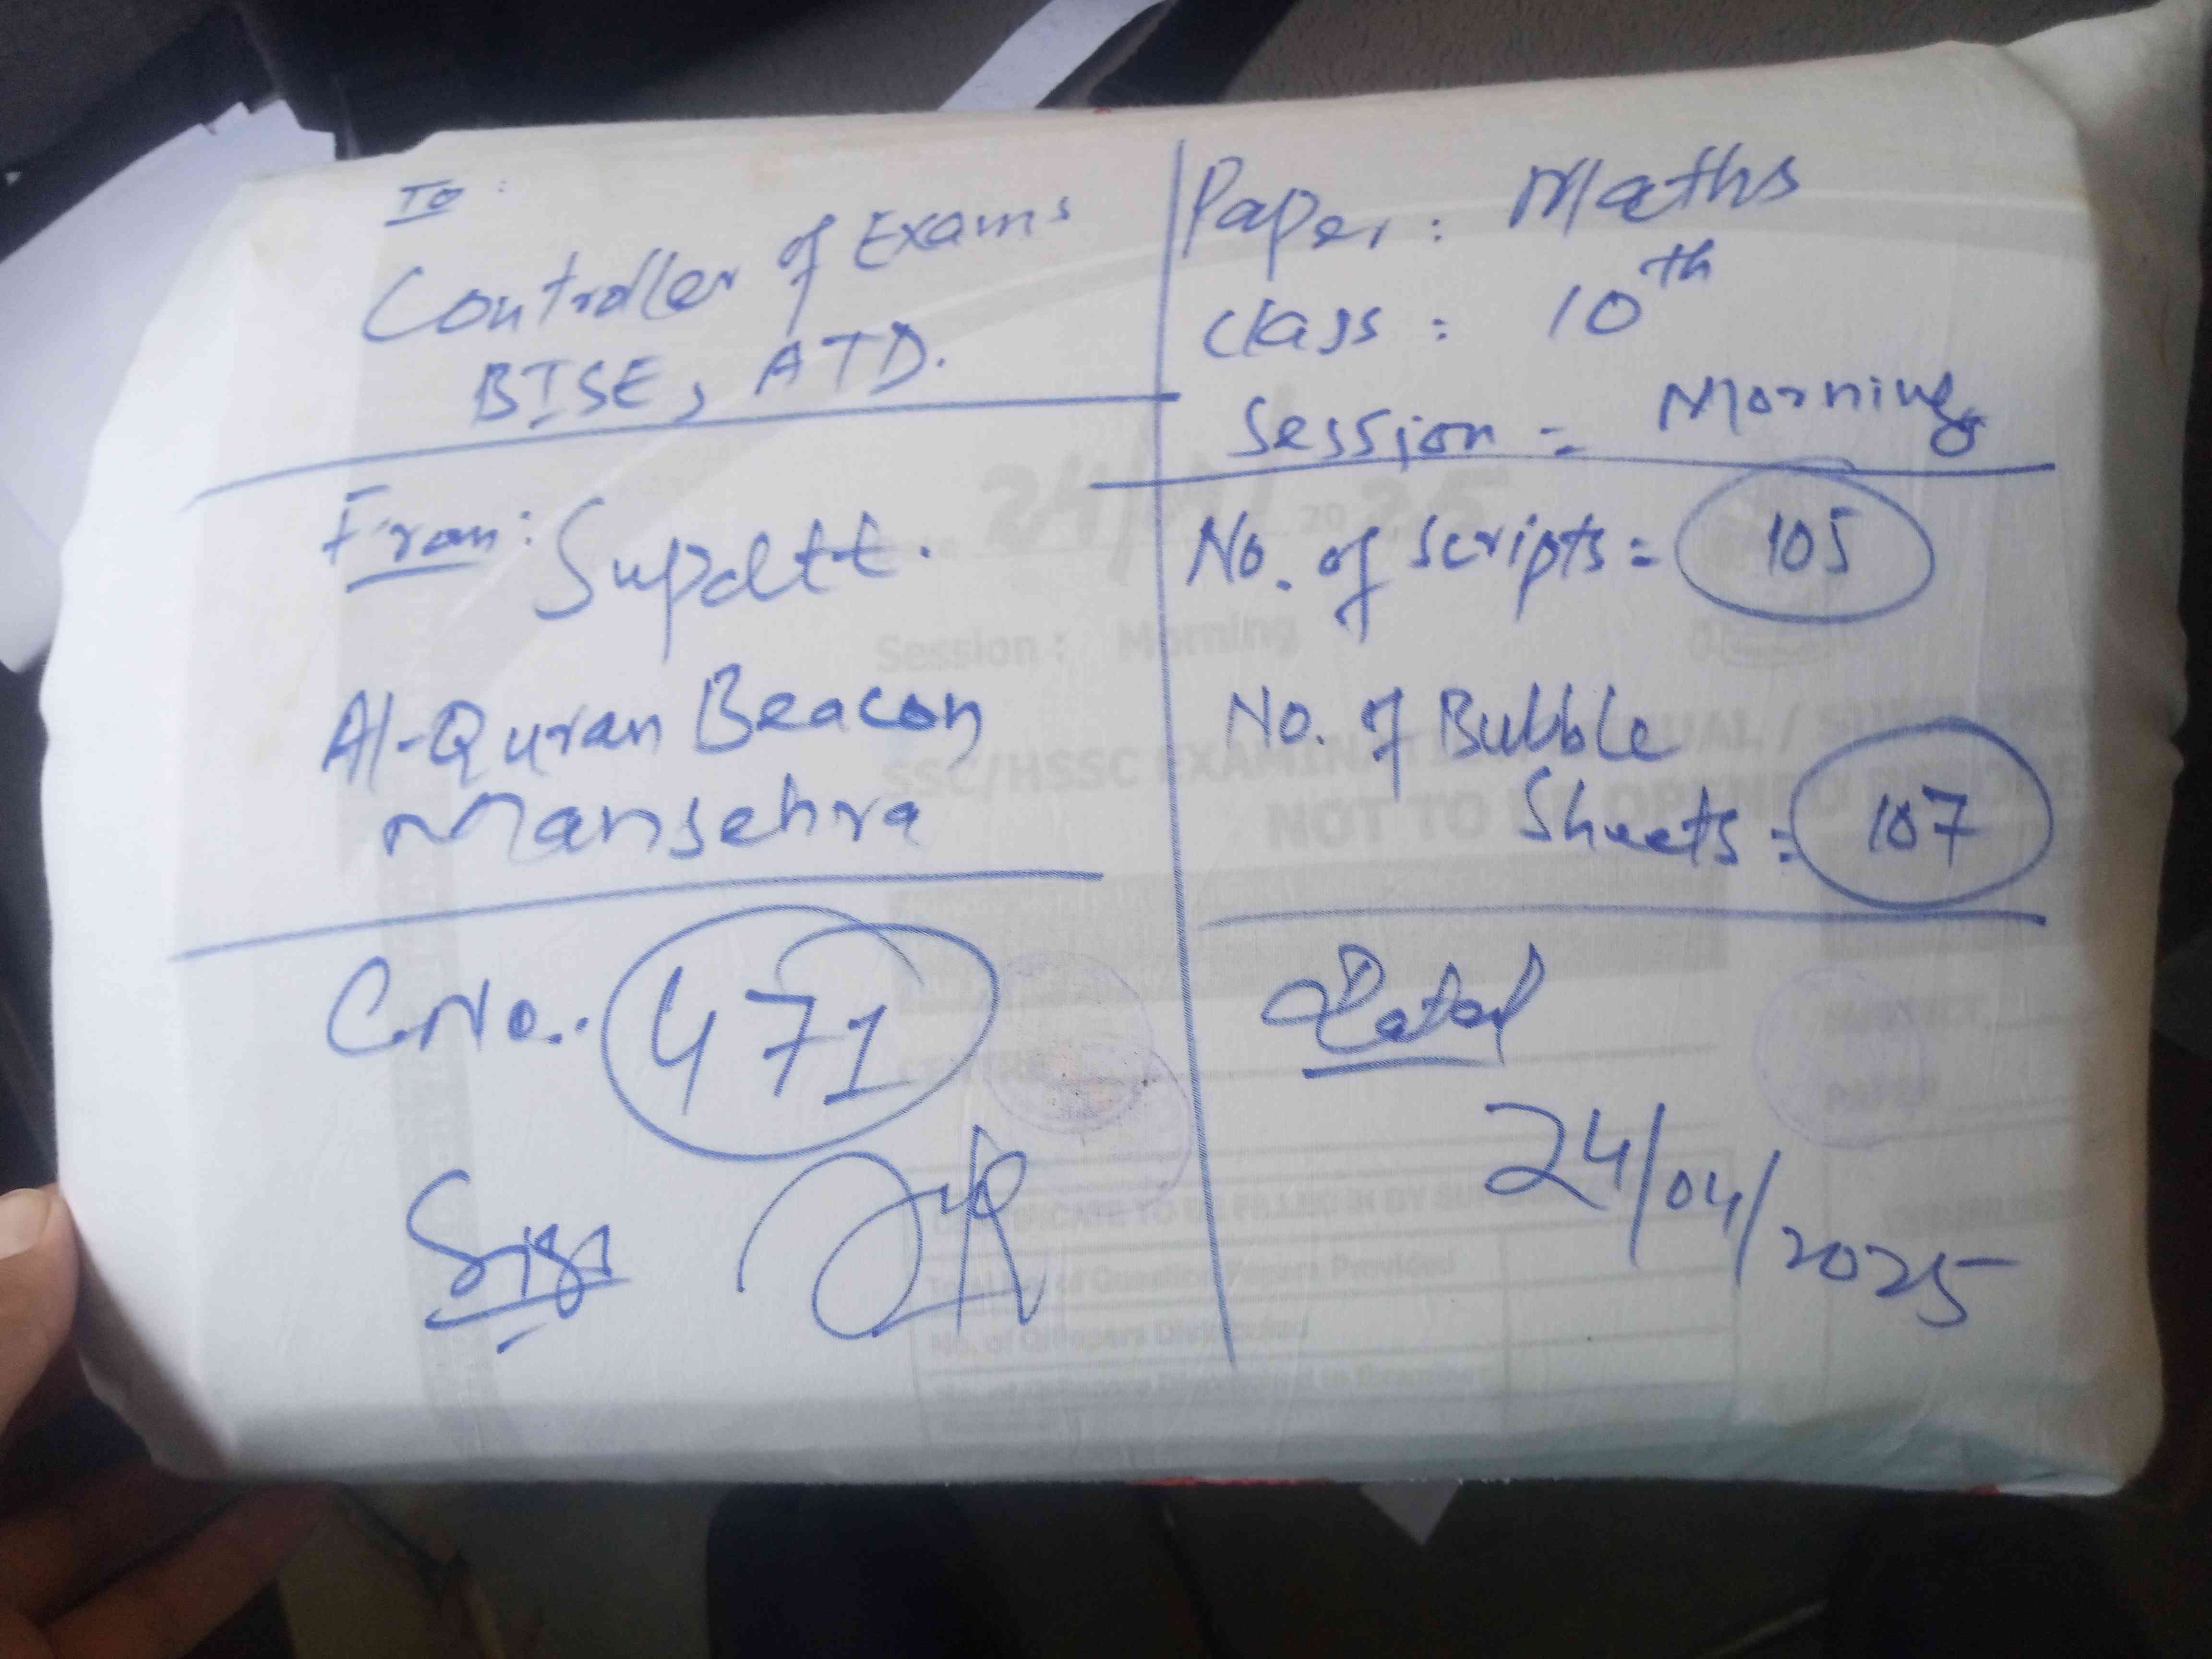 To:
Controller of Exams
BISE, ATD.
Paper: Maths
Class: 10th
Session = Morning
From: Supdtt.
Al-Quran Beacon
Mansehra
No. of Scripts = 105
No. of Bubble
Sheets = 107
C.No.. 471
Sign
Dated
24/04/2025
24/04/2025
Session : Morning
SSC/HSSC EXAMINATION
NOT TO BE OPENED
CENTRE
SUBJECT
PAPER
CERTIFICATE TO BE FILLED IN BY
Total No of Question Papers Provided
No. of Q/Papers Distributed